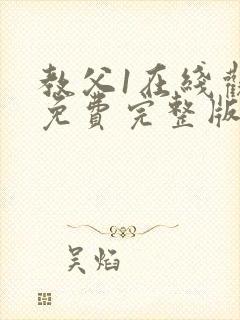 教父1在綫
免費完整版
吴焰